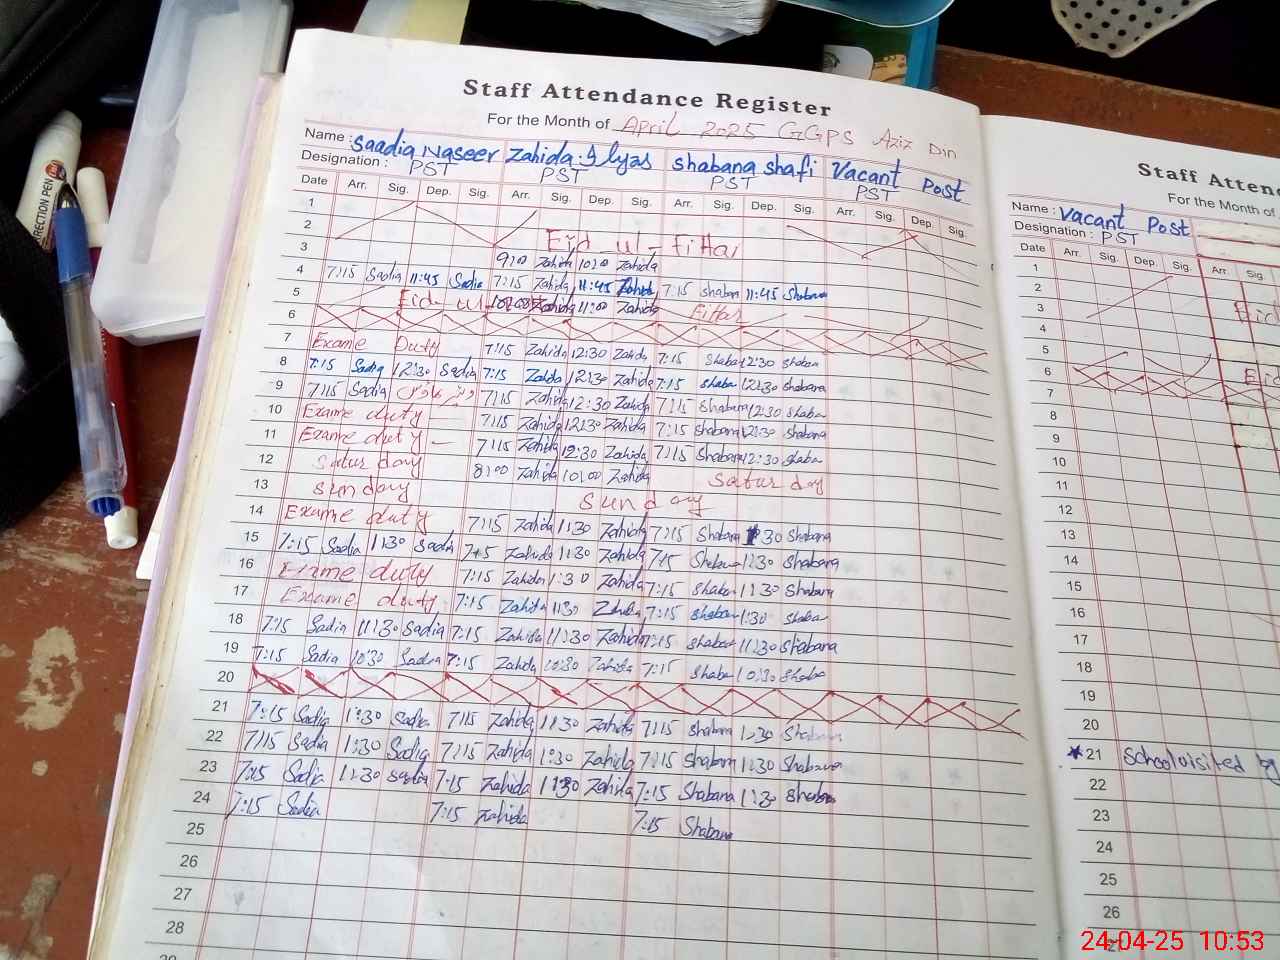 Staff Attendance Register
For the Month of April 2025 GGPS Aziz Din
Name : Saadia Naseer Zahida Ilyas Shabana Shafi Vacant Post
Designation : PST PST PST PST
Date Arr. Sig. Dep. Sig. Arr. Sig. Dep. Sig. Arr. Sig. Dep. Sig. Arr. Sig. Dep. Sig.
1
2 Eid ul-fittar
3 9:00 Zahida 10:00 Zahida
4 7:15 Sadia 11:45 Sadia 7:15 Zahida 11:45 Zahida 7:15 Shaban 11:45 Shabana
5 Eid ul Zahida 11:00 Zahida Fittar
6
7 Exame Duty 7:15 Zahida 12:30 Zahida 7:15 Shaba 12:30 Shaba
8 7:15 Sadia 12:30 Sadia 7:15 Zahida 12:30 Zahida 7:15 Shaba 12:30 Shabana
9 7:15 Sadia 7:15 Zahida 12:30 Zahida 7:15 Shabana 12:30 Shaba
10 Exame duty 7:15 Zahida 12:30 Zahida 7:15 Shabana 12:30 Shabana
11 Exame duty 7:15 Zahida 12:30 Zahida 7:15 Shabana 12:30 Shaba
12 Satur day 8:00 Zahida 10:00 Zahida Satur day
13 Sunday Sunday
14 Exame duty 7:15 Zahida 1:30 Zahida 7:15 Shabana 1:30 Shabana
15 7:15 Sadia 1:30 Sadia 7:15 Zahida 1:30 Zahida 7:15 Shabana 1:30 Shabana
16 Exame duty 7:15 Zahida 1:30 Zahida 7:15 Shaban 1:30 Shabana
17 Exame duty 7:15 Zahida 1:30 Zahida 7:15 Shaban 1:30 Shaba
18 7:15 Sadia 11:30 Sadia 7:15 Zahida 11:30 Zahida 7:15 Shaba 11:30 Shabana
19 7:15 Sadia 10:30 Sadia 7:15 Zahida 10:30 Zahida 7:15 Shaba 10:30 Shaba
20
21 7:15 Sadia 1:30 Sadia 7:15 Zahida 1:30 Zahida 7:15 Shabana 1:30 Shabana
22 7:15 Sadia 1:30 Sadia 7:15 Zahida 1:30 Zahida 7:15 Shabana 1:30 Shabana
23 7:15 Sadia 1:30 Sadia 7:15 Zahida 1:30 Zahida 7:15 Shabana 1:30 Shabana
24 7:15 Sadia 7:15 Zahida 7:15 Shabana
25
26
27
28
Staff Atten
For the Month of
Name : Vacant Post
Designation : PST
Date Arr. Sig. Dep. Sig. Arr. Sig.
1
2
3 Eid
4
5
6 Eid
7
8
9
10
11
12
13
14
15
16
17
18
19
20
*21 School visited by
22
23
24
25
26
24-04-25 10:53